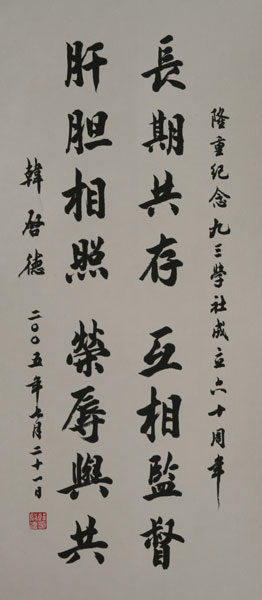 隆重纪念九三學社成立六十周年
長期共存互相監督
肝胆相照榮辱與共
韓啓德
二〇〇五年七月二十一日